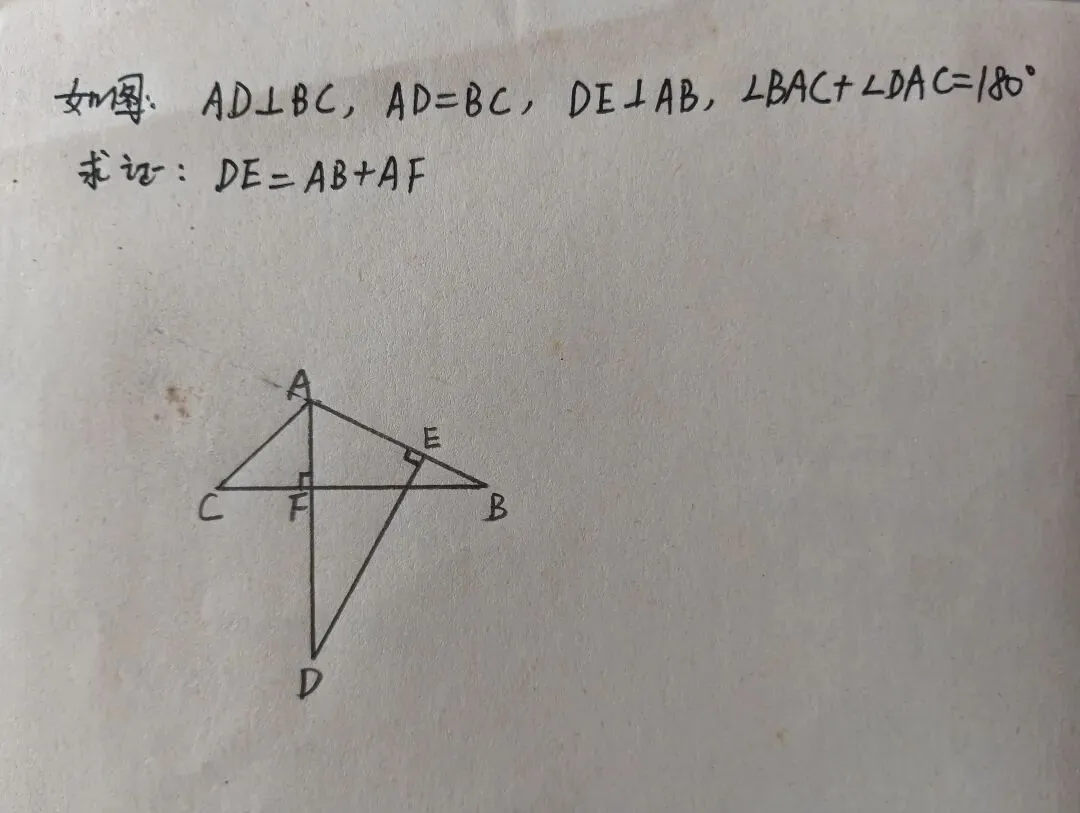 如图: AD⊥BC, AD=BC, DE⊥AB, ∠BAC+∠DAC=180°
求证: DE=AB+AF
A
E
C
F
B
D